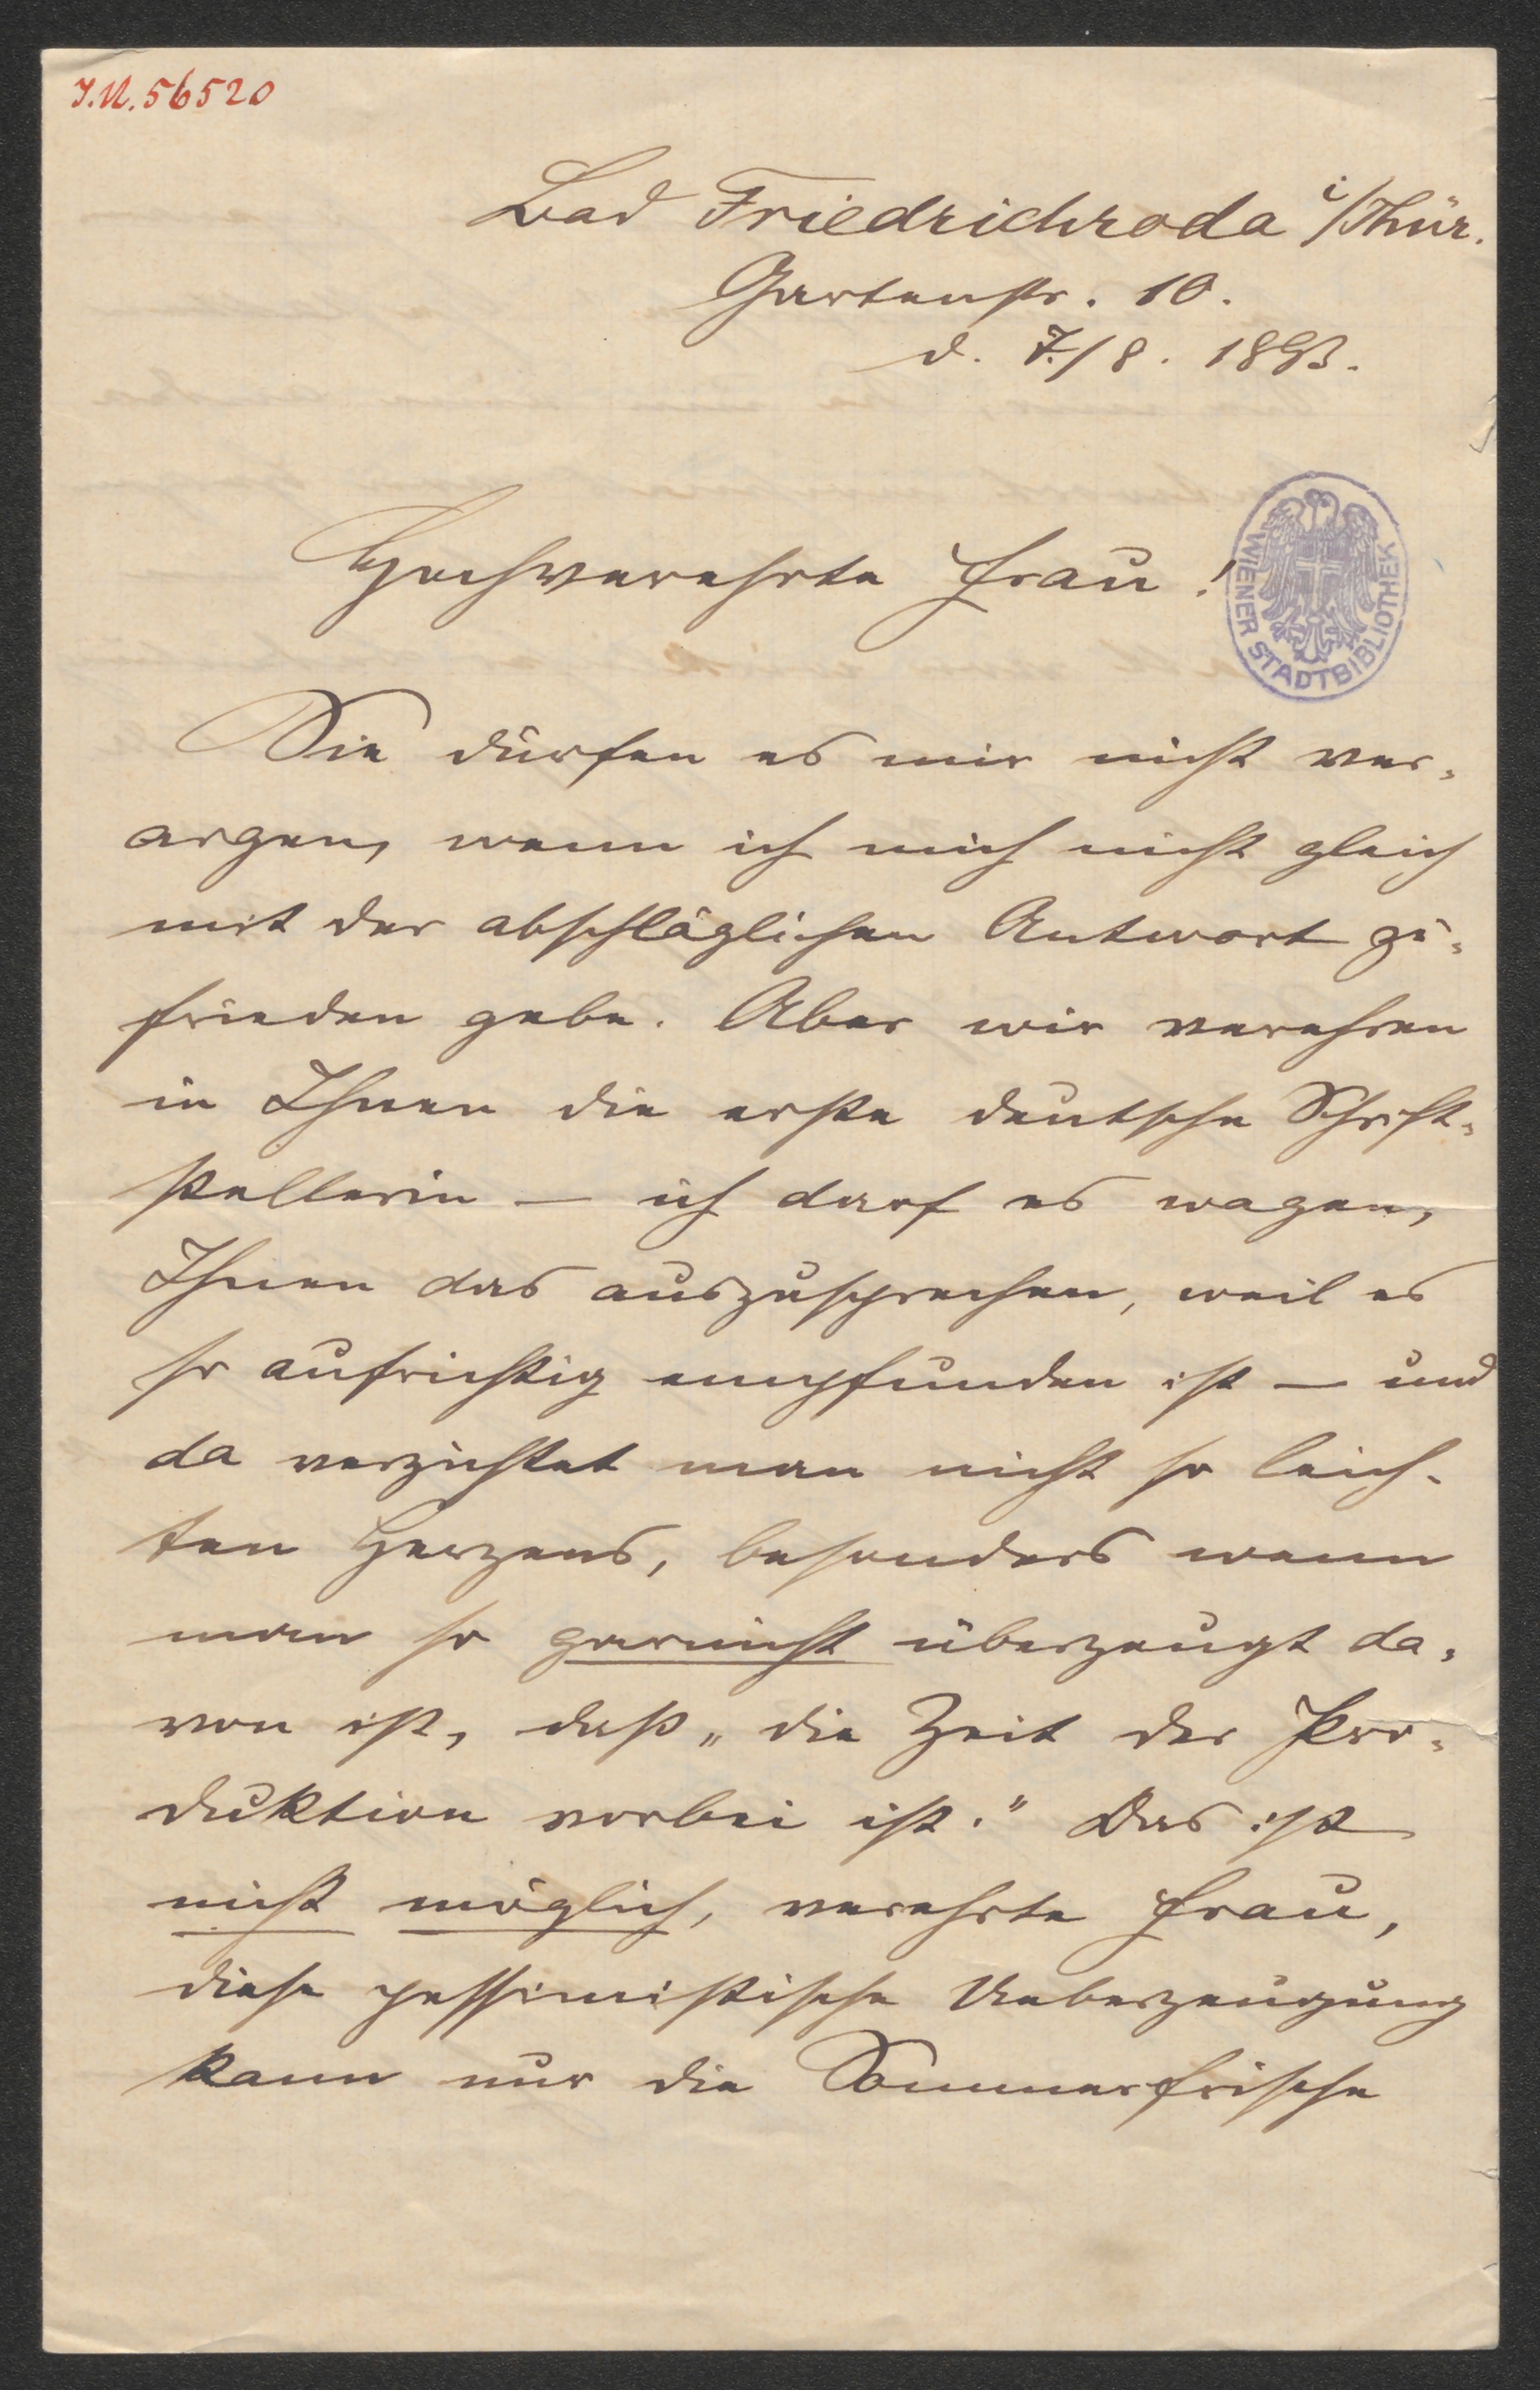 I.N. 56520
Bad Friedrichroda i/Thür.
Gartenstr. 10.
d. 7./8. 1893.
Hochverehrte Frau!
WIENER STADTBIBLIOTHEK
Sie dürfen es mir nicht ver-
argen, wenn ich mich nicht gleich
mit der abschläglichen Antwort zu-
frieden gebe. Aber wir verehren
in Ihnen die erste deutsche Schrift-
stellerin — ich darf es wagen,
Ihnen das auszusprechen, weil es
so aufrichtig empfunden ist — und
da verzichtet man nicht so leich-
ten Herzens, besonders wenn
man so garnicht überzeugt da-
von ist, daß „die Zeit der Pro-
duktion vorbei ist." Das ist
nicht möglich, verehrte Frau,
diese pessimistische Ueberzeugung
kann nur die Sommerfrische